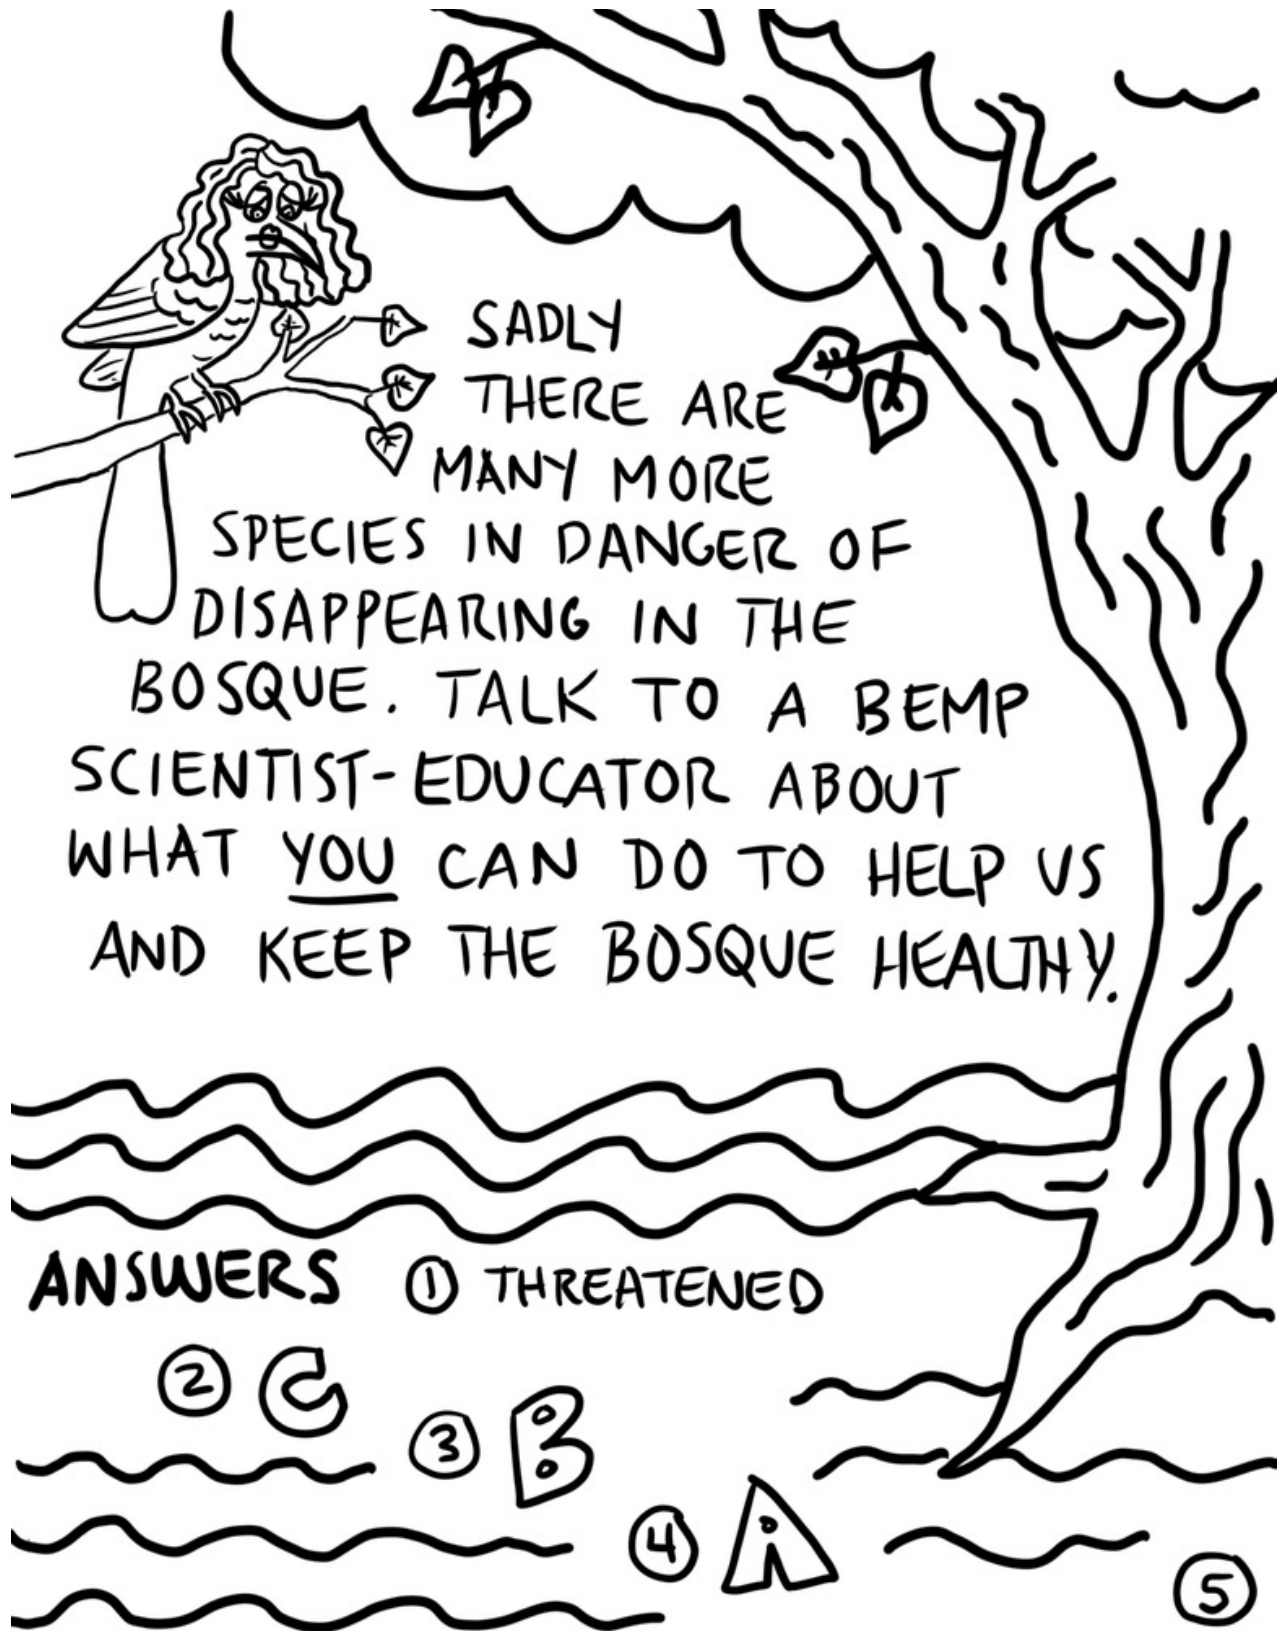 SADLY
THERE ARE
MANY MORE
SPECIES IN DANGER OF
DISAPPEARING IN THE
BOSQUE. TALK TO A BEMP
SCIENTIST-EDUCATOR ABOUT
WHAT YOU CAN DO TO HELP US
AND KEEP THE BOSQUE HEALTHY.
ANSWERS 1 THREATENED
2 C
3 B
4 A
5